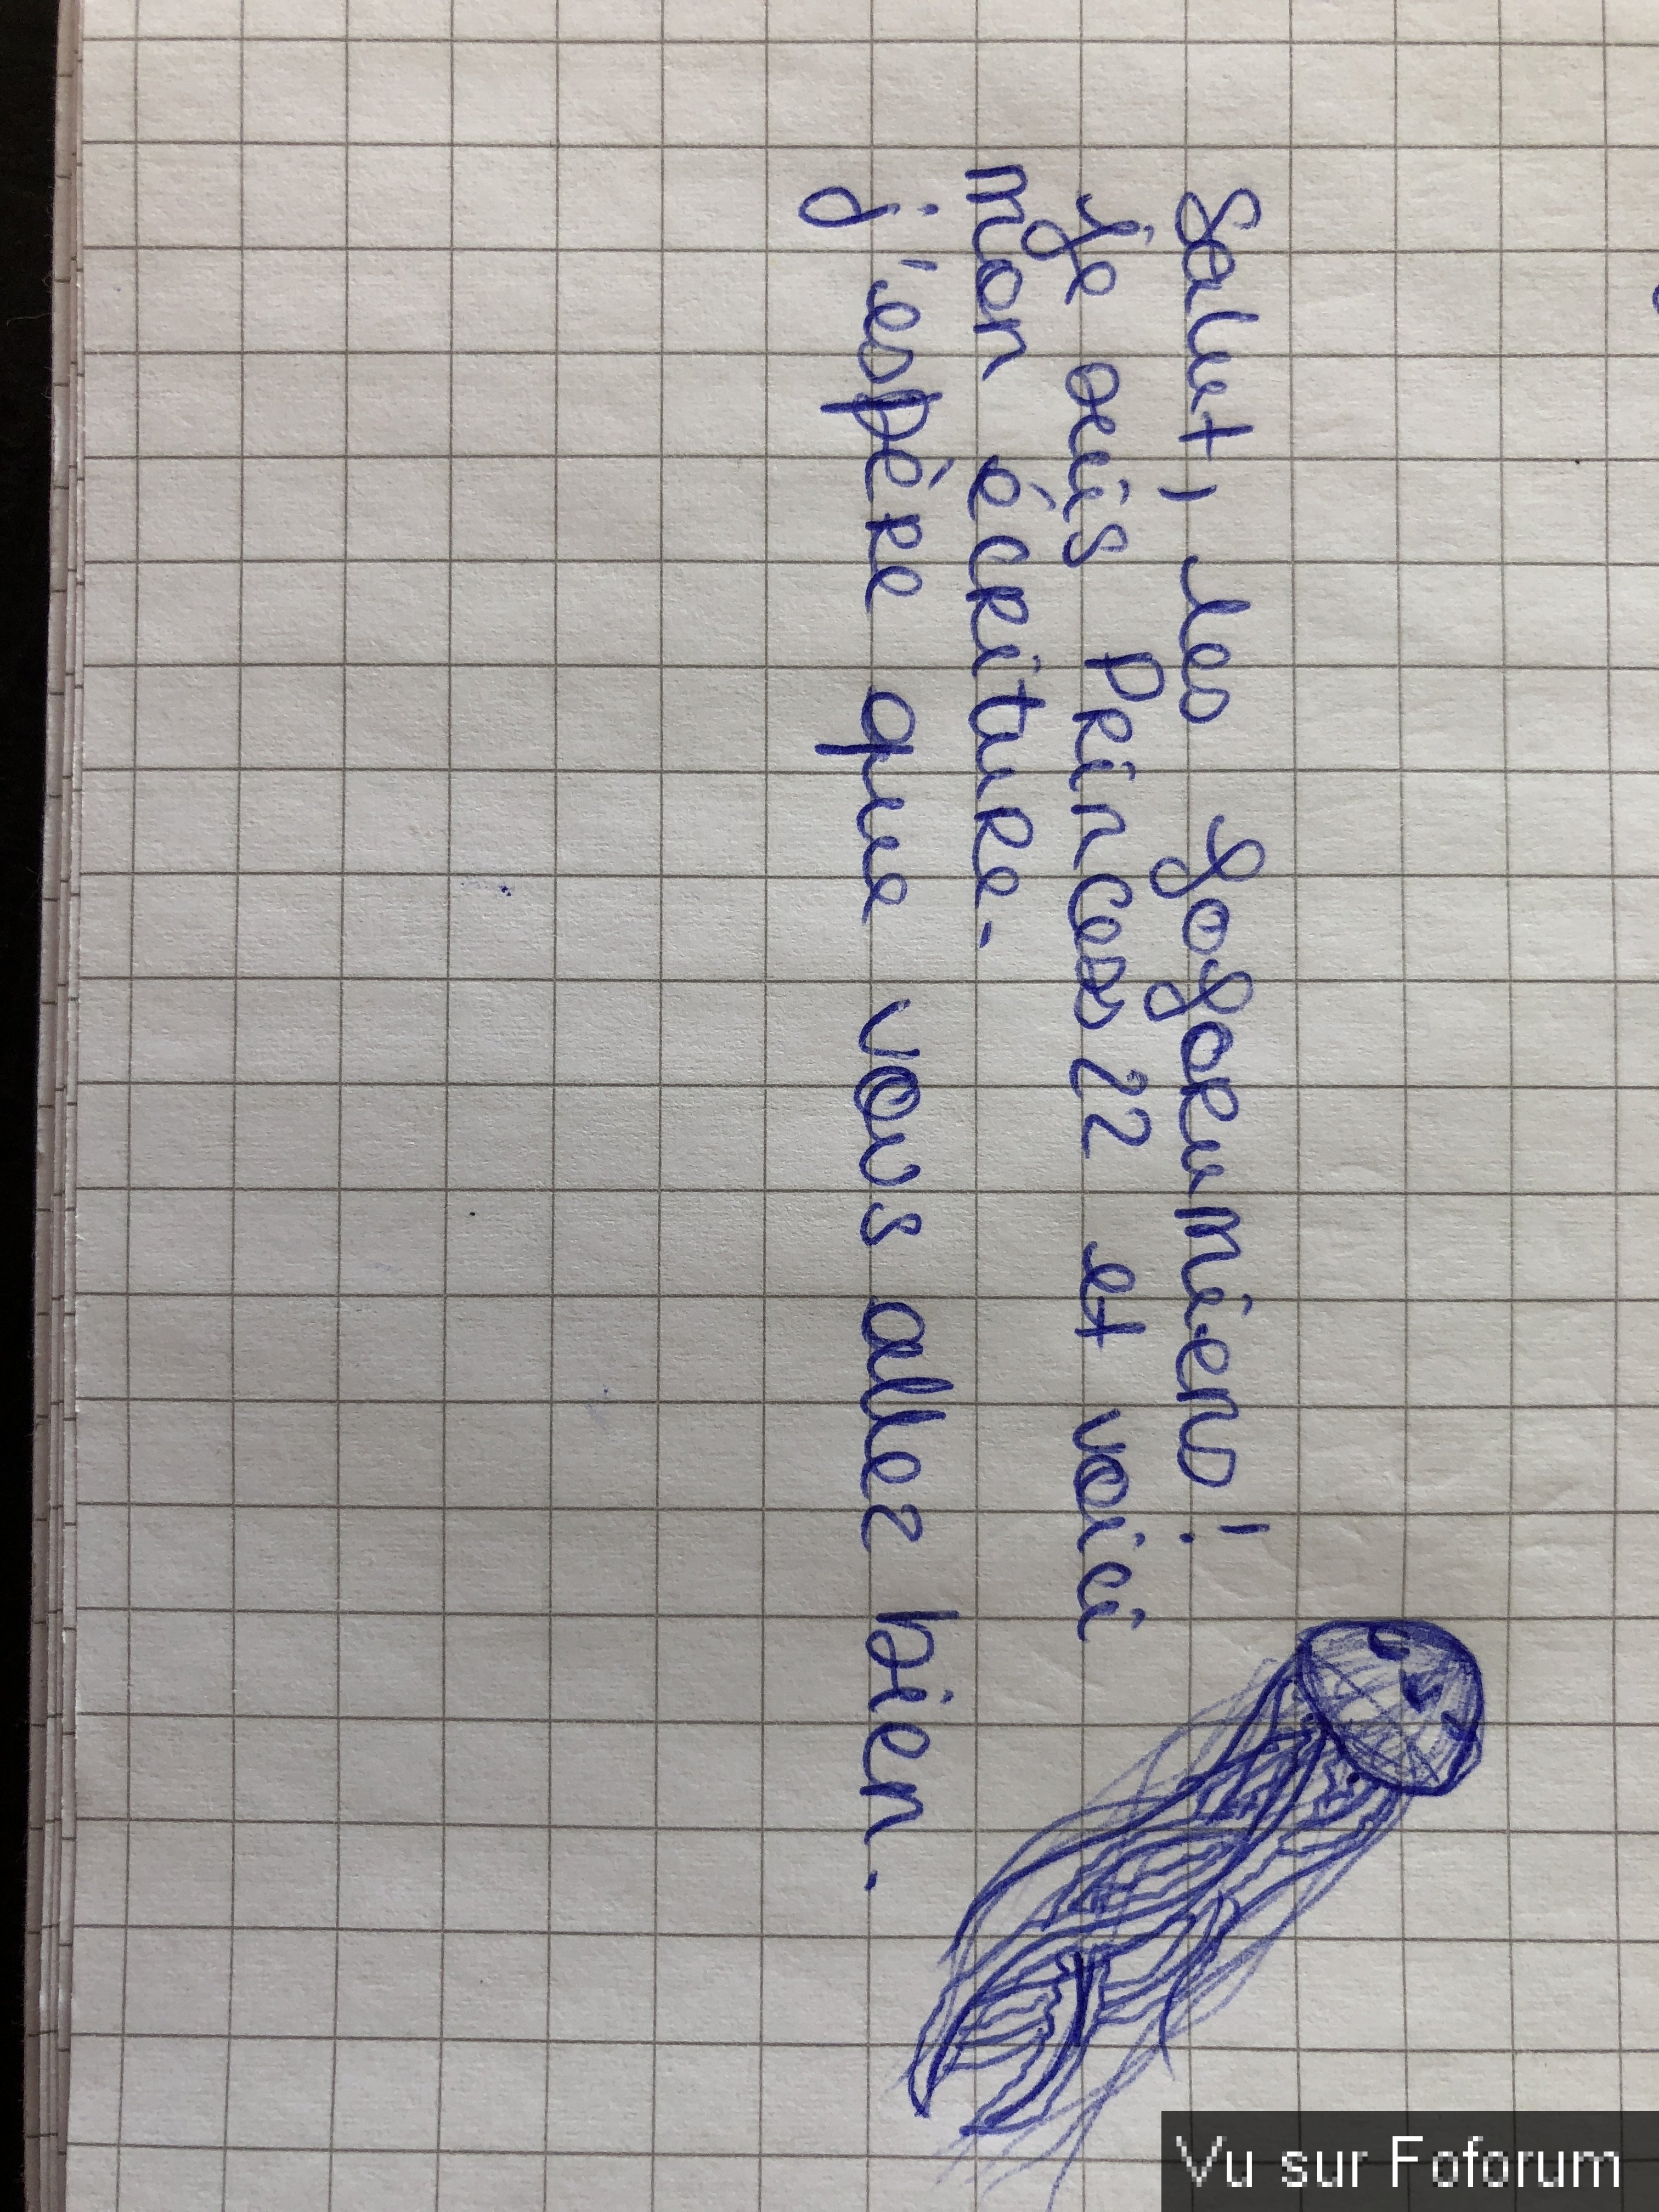 Salut, les foforumiens !
Je suis Princess22 et voici
mon écriture.
j'espère que vous allez bien.
Vu sur Foforum